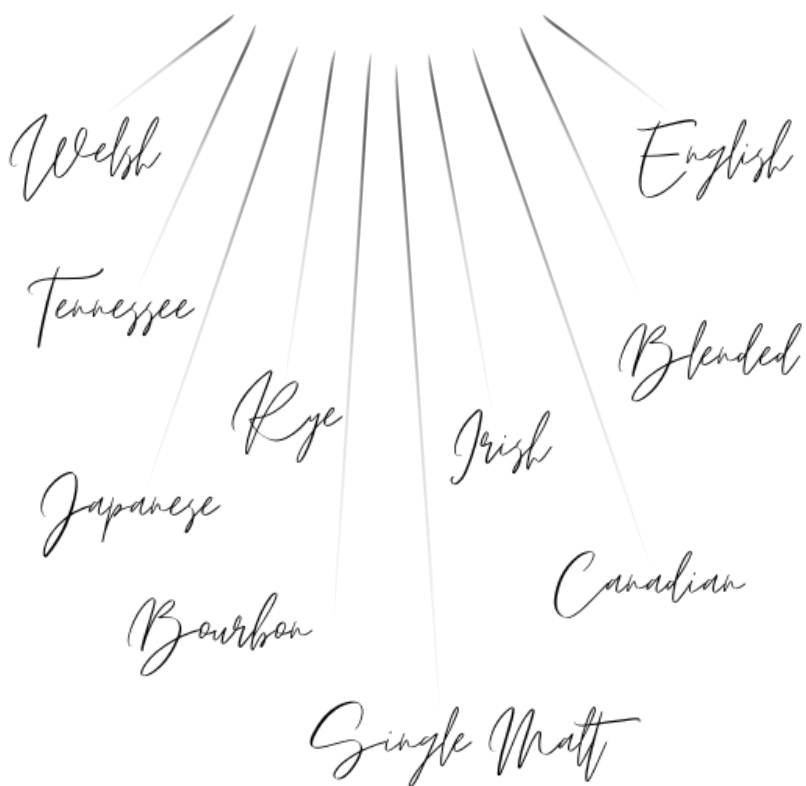 Welsh
English
Tennessee
Blended
Rye
Irish
Japanese
Canadian
Bourbon
Single Malt